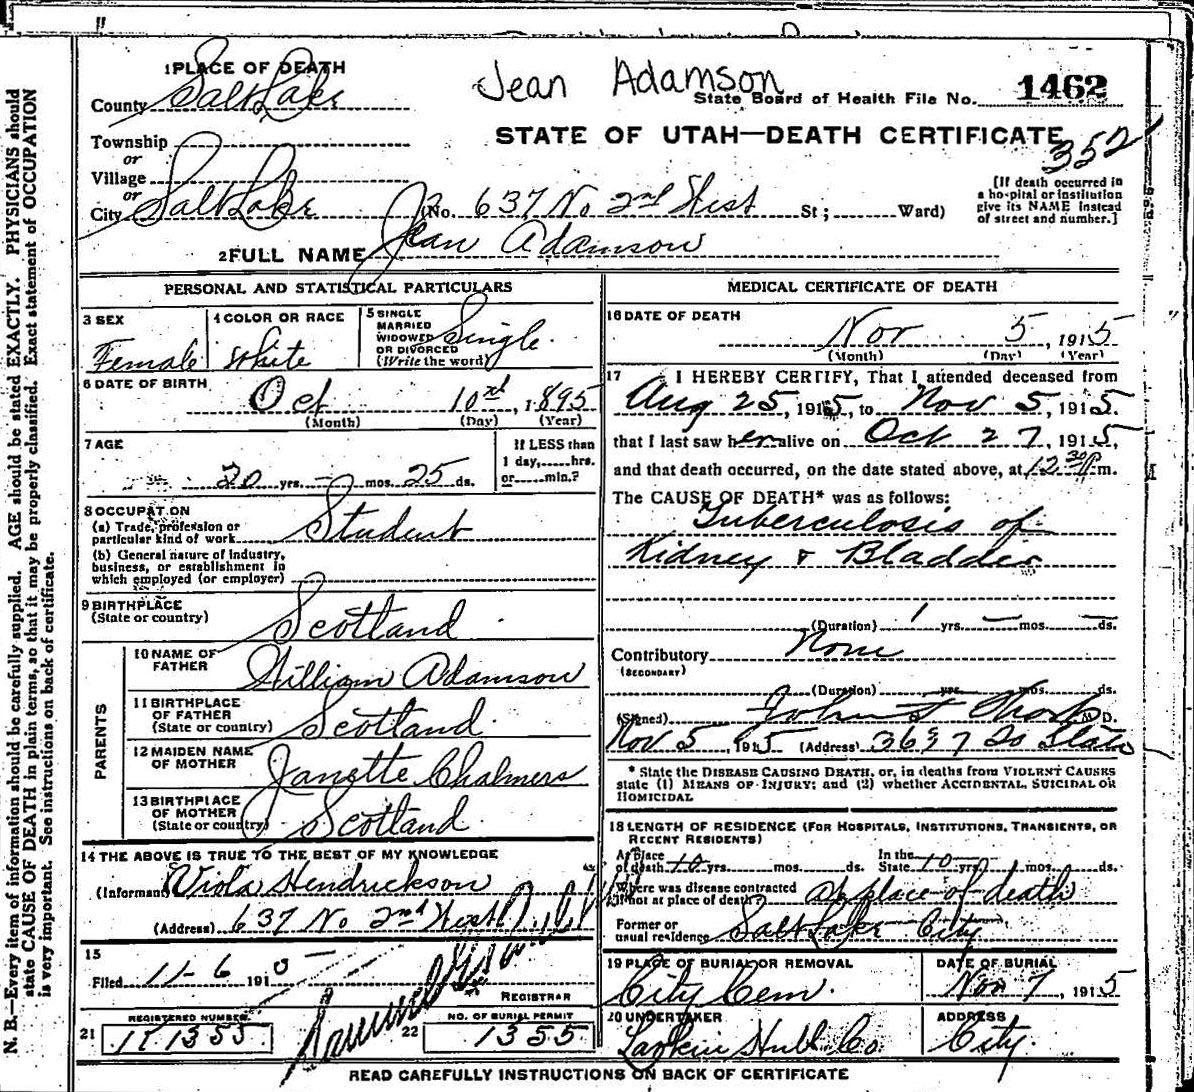 Jean Adamson
1 PLACE OF DEATH
County Salt Lake
State Board of Health File No. 1462
STATE OF UTAH—DEATH CERTIFICATE
352
Township
or
Village
or
City Salt Lake (No. 637 No 2nd West St ; Ward)
[If death occurred in
a hospital or institution
give its NAME instead
of street and number.]
2 FULL NAME Jean Adamson
PERSONAL AND STATISTICAL PARTICULARS
3 SEX
Female
4 COLOR OR RACE
White
5 SINGLE
MARRIED
WIDOWED
OR DIVORCED
(Write the word)
Single.
6 DATE OF BIRTH
Oct 10th, 1895
(Month) (Day) (Year)
7 AGE
20 yrs. — mos. 25 ds.
If LESS than
1 day,......hrs.
or......min.?
8 OCCUPATION
(a) Trade, profession or
particular kind of work Student
(b) General nature of industry,
business, or establishment in
which employed (or employer)
9 BIRTHPLACE
(State or country) Scotland
PARENTS
10 NAME OF
FATHER William Adamson
11 BIRTHPLACE
OF FATHER
(State or country) Scotland.
12 MAIDEN NAME
OF MOTHER Janette Chalmers
13 BIRTHPLACE
OF MOTHER
(State or country) Scotland.
14 THE ABOVE IS TRUE TO THE BEST OF MY KNOWLEDGE
(Informant) Viola Hendrickson
(Address) 637 No 2nd West
15
Filed 11-6 191
REGISTRAR
REGISTERED NUMBER
21
NO. OF BURIAL PERMIT
22 1355
MEDICAL CERTIFICATE OF DEATH
16 DATE OF DEATH
Nov 5, 1915
(Month) (Day) (Year)
17 I HEREBY CERTIFY, That I attended deceased from
Aug 25, 1915, to Nov 5, 1915.
that I last saw her alive on Oct 27, 1915,
and that death occurred, on the date stated above, at 12 30 P m.
The CAUSE OF DEATH* was as follows:
Tuberculosis of
Kidney & Bladder
(Duration) 1 yrs. — mos. — ds.
Contributory None
(SECONDARY)
(Duration) yrs. mos. ds.
(Signed) M.D.
Nov 5, 1915 (Address) So State
* State the DISEASE CAUSING DEATH, or, in deaths from VIOLENT CAUSES
state (1) MEANS OF INJURY; and (2) whether ACCIDENTAL, SUICIDAL OR
HOMICIDAL
18 LENGTH OF RESIDENCE (FOR HOSPITALS, INSTITUTIONS, TRANSIENTS, OR
RECENT RESIDENTS)
At place
of death 10 yrs. mos. ds.
In the
State 10 yrs. mos. ds.
Where was disease contracted
if not at place of death? at place of death
Former or
usual residence Salt Lake City
19 PLACE OF BURIAL OR REMOVAL
City Cem.
DATE OF BURIAL
Nov 7, 1915
20 UNDERTAKER
Larkin Hull Co
ADDRESS
City.
READ CAREFULLY INSTRUCTIONS ON BACK OF CERTIFICATE
N. B.—Every item of information should be carefully supplied. AGE should be stated EXACTLY. PHYSICIANS should
state CAUSE OF DEATH in plain terms, so that it may be properly classified. Exact statement of OCCUPATION
is very important. See instructions on back of certificate.